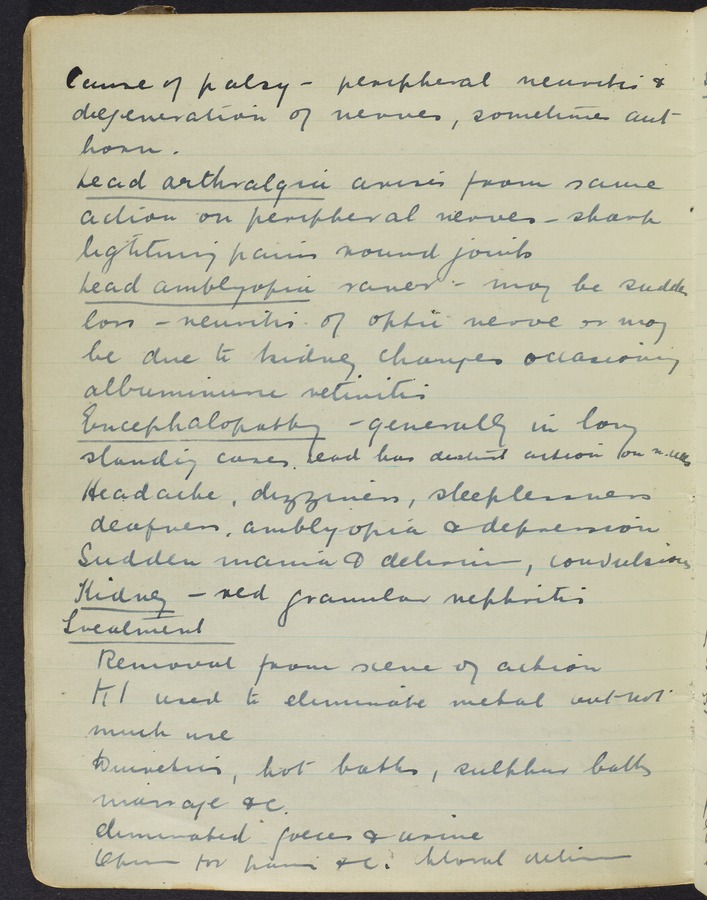 Cause of palsy - peripheral neuritis &
degeneration of nerves, sometimes ant
horn.
Lead arthralgia arises from same
action on peripheral nerves - sharp
lightning pains round joints
Lead amblyopia rarer - may be sudden
loss - neuritis of optic nerve or may
be due to kidney changes occasioning
albuminuric retinitis
Encephalopathy - generally in long
standing cases. Lead has distinct action on
Headache, dizziness, sleeplessness
deafness, amblyopia & depression
Sudden mania & delirium, convulsions
Kidney - red granular nephritis
Treatment
Removal from scene of action
KI used to eliminate metal but not
much use
Diuretics, hot baths, sulphur baths
massage &c.
eliminated faeces & urine
Opium for pain &c. Chloral delirium